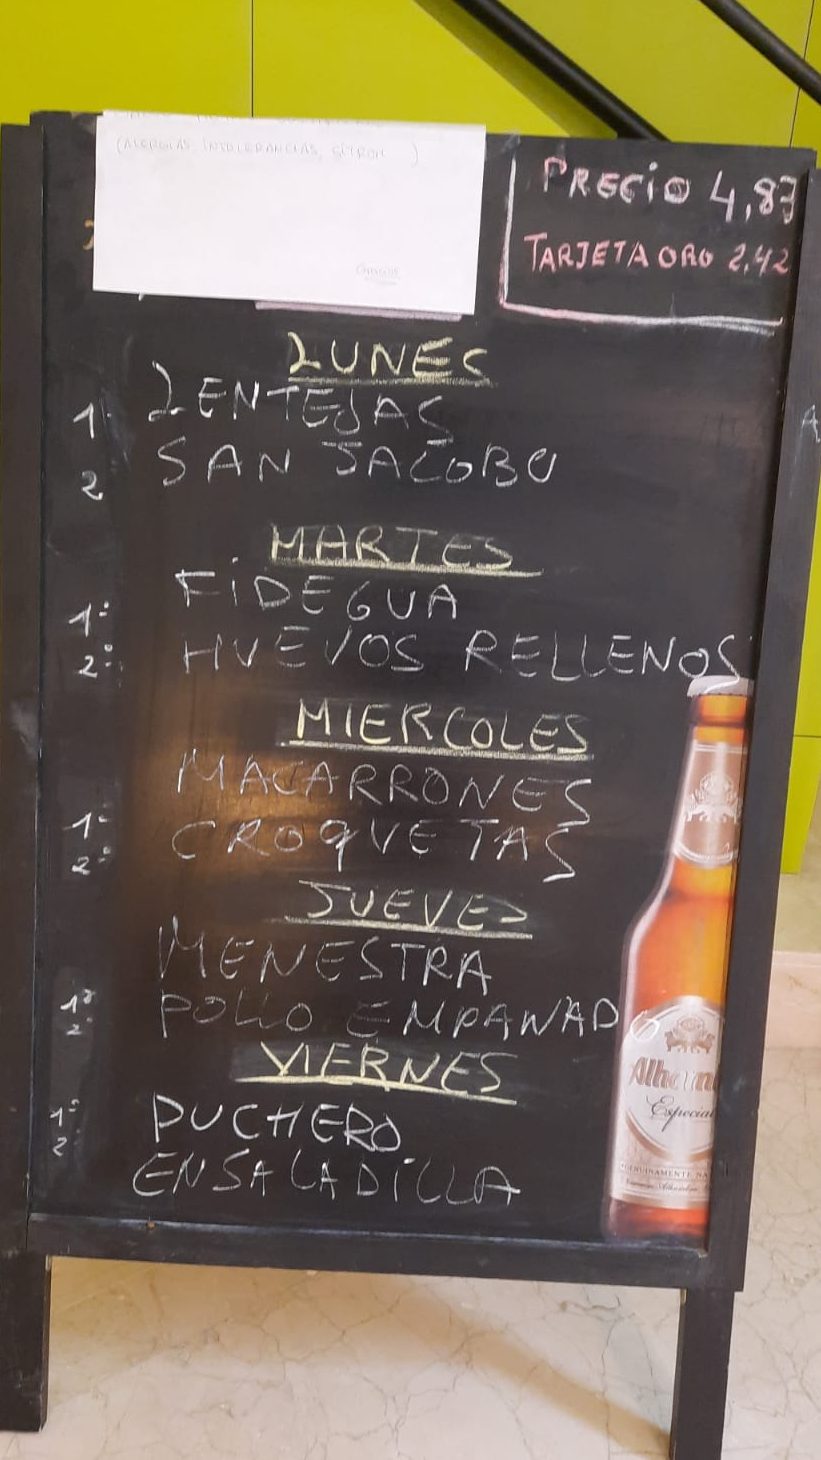 (ALERGIAS, INTOLERANCIAS,          )
PRECIO 4,83
TARJETA ORO 2,42
LUNES
1 LENTEJAS
2 SAN JACOBO
MARTES
1º FIDEGUA
2º HUEVOS RELLENOS
MIERCOLES
1º MACARRONES
2º CROQUETAS
JUEVES
1º MENESTRA
2º POLLO EMPANADO
VIERNES
1º PUCHERO
2º ENSALADILLA
Especial